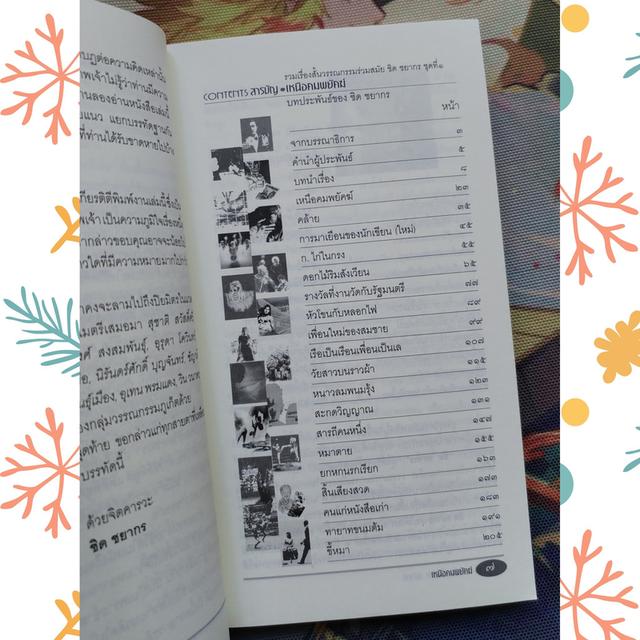 บฏต่อความคิดเหล่านั้น
พเจ้าไม่รู้ว่าท่านมีความ
นลองอ่านหนังสือเล่มนี้
ยแนว แยกบรรทัดฐานกัน
ที่ท่านได้รับขาดหายไปบ้าง
กียรติตีพิมพ์งานเล่มนี้ซึ่งเป็น
พเจ้า เป็นความภูมิใจเรื่องหนึ่ง
ากล่าวขอบคุณอาจจะน้อยไป
าวใดที่มีความหมายมากไปกว่า
คงจะลามไปถึงปิยมิตรในแวดวง
ไมตรีเสมอมา สุชาติ สวัสดิ์ศรี
ศ์ สงสมพันธุ์, อุรุดา โควินท์
อ, นิรันดร์ศักดิ์ บุญจันทร์,
นธุ์เมือง, อุเทน พรมแดง, วิน วนาดร
องกลุ่มวรรณกรรมภูเก็ตด้วย
ดท้าย ขอกล่าวแก่ทุกสายตาที่
บรรทัดนี้
ด้วยจิตคารวะ
ชิด ชยากร
รวมเรื่องสั้นวรรณกรรมร่วมสมัย ชิด ชยากร ชุดที่๑
CONTENTS สารบัญ เหนือคมพยัคฆ์
บทประพันธ์ของ ชิด ชยากร
หน้า
จากบรรณาธิการ ๓
คำนำผู้ประพันธ์ ๕
บทนำเรื่อง ๘
เหนือคมพยัคฆ์ ๒๓
คล้าย ๓๕
การมาเยือนของนักเขียน (ใหม่) ๔๕
ก. ไก่ในกรง ๕๕
ดอกไม้ริมสังเวียน ๖๕
รางวัลที่งานวัดกับรัฐมนตรี ๗๗
หัวโขนกับหลอกไฟ ๘๙
เพื่อนใหม่ของสมชาย ๙๙
เรือเป็นเรือนเพื่อนเป็นเล ๑๐๗
วัยสาวบนราวผ้า ๑๑๕
หนาวลมพนมรุ้ง ๑๒๓
สะกดวิญญาณ ๑๓๑
สารถีคนหนึ่ง ๑๔๗
หมาตาย ๑๕๕
ยกหกนรกเรียก ๑๖๓
สิ้นเสียงสวด ๑๗๓
คนแก่หนังสือเก่า ๑๘๓
ทายาทขนมต้ม ๑๙๑
ขี้หมา ๒๐๕
เหนือคมพยัคฆ์ ๗